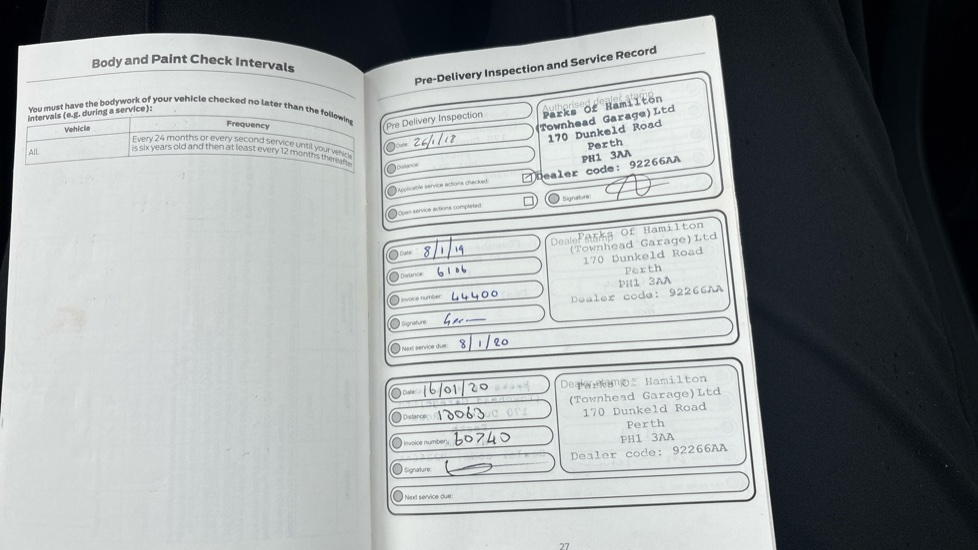 Body and Paint Check Intervals
You must have the bodywork of your vehicle checked no later than the following
intervals (e.g. during a service):
Vehicle Frequency
All. Every 24 months or every second service until your vehicle
is six years old and then at least every 12 months thereafter.
Pre-Delivery Inspection and Service Record
Pre Delivery Inspection
Date: 26/1/18
Distance:
Applicable service actions checked:
Open service actions completed:
Authorised dealer stamp
Parks Of Hamilton
(Townhead Garage)Ltd
170 Dunkeld Road
Perth
PH1 3AA
Dealer code: 92266AA
Signature:
Date: 8/1/19
Distance: 6106
Invoice number: 44400
Signature:
Next service due: 8/1/20
Dealer stamp
Parks Of Hamilton
(Townhead Garage)Ltd
170 Dunkeld Road
Perth
PH1 3AA
Dealer code: 92266AA
Date: 16/01/20
Distance: 13063
Invoice number: 60740
Signature:
Next service due:
Dealer stamp
Parks Of Hamilton
(Townhead Garage)Ltd
170 Dunkeld Road
Perth
PH1 3AA
Dealer code: 92266AA
27